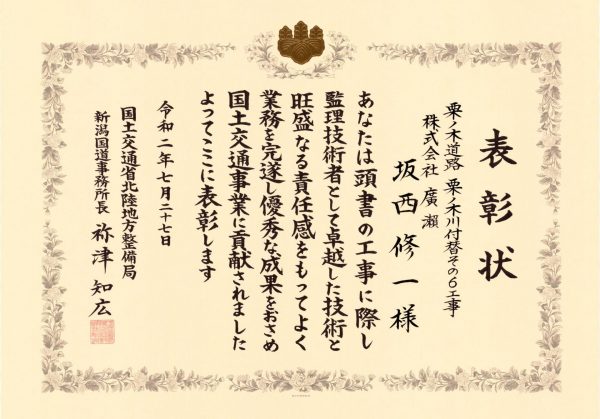 表彰状
栗ノ木道路 栗ノ木川付替その6工事
株式会社 廣瀬
坂西修一様
あなたは頭書の工事に際し
監理技術者として卓越した技術と
旺盛なる責任感をもってよく
業務を完遂し優秀な成果をおさめ
国土交通事業に貢献されました
よってここに表彰します
令和二年七月二十七日
国土交通省北陸地方整備局
新潟国道事務所長 祢津知広